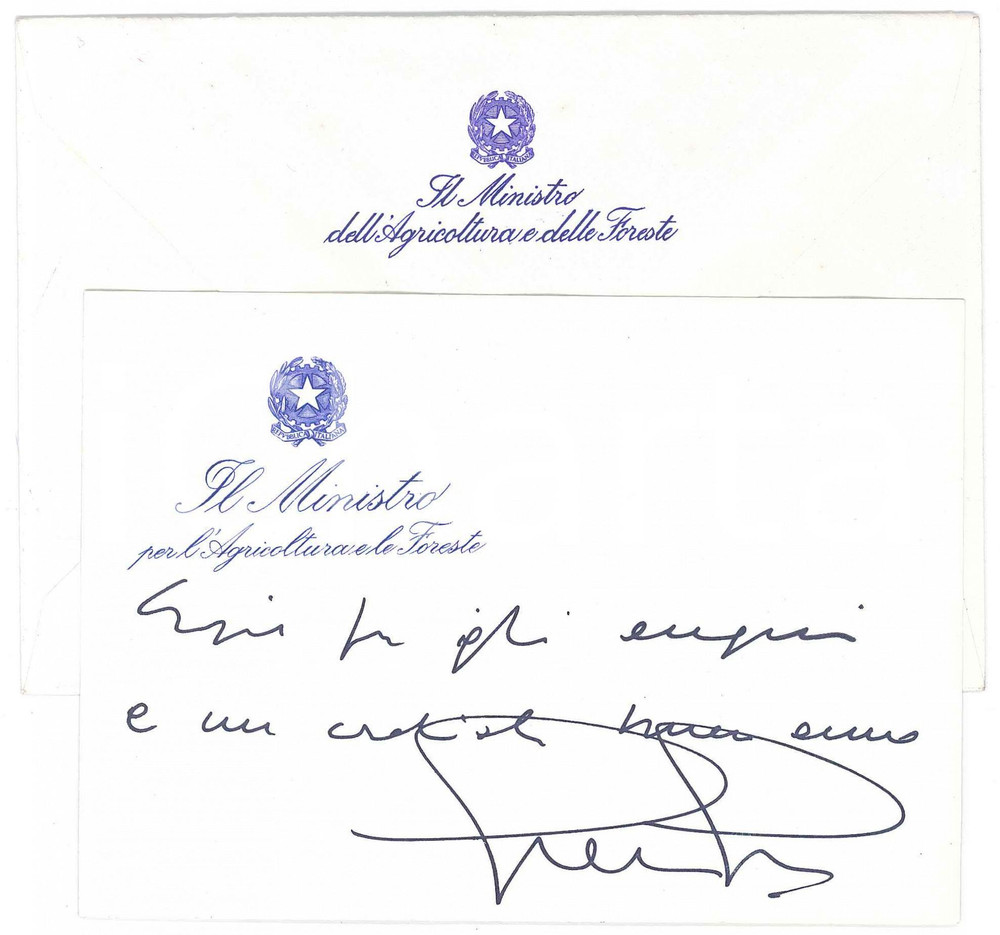 REPVBBLICA ITALIANA
Il Ministro
dell'Agricoltura e delle Foreste
REPVBBLICA ITALIANA
Il Ministro
per l'Agricoltura e le Foreste
per gli auguri
e un cordiale buon anno